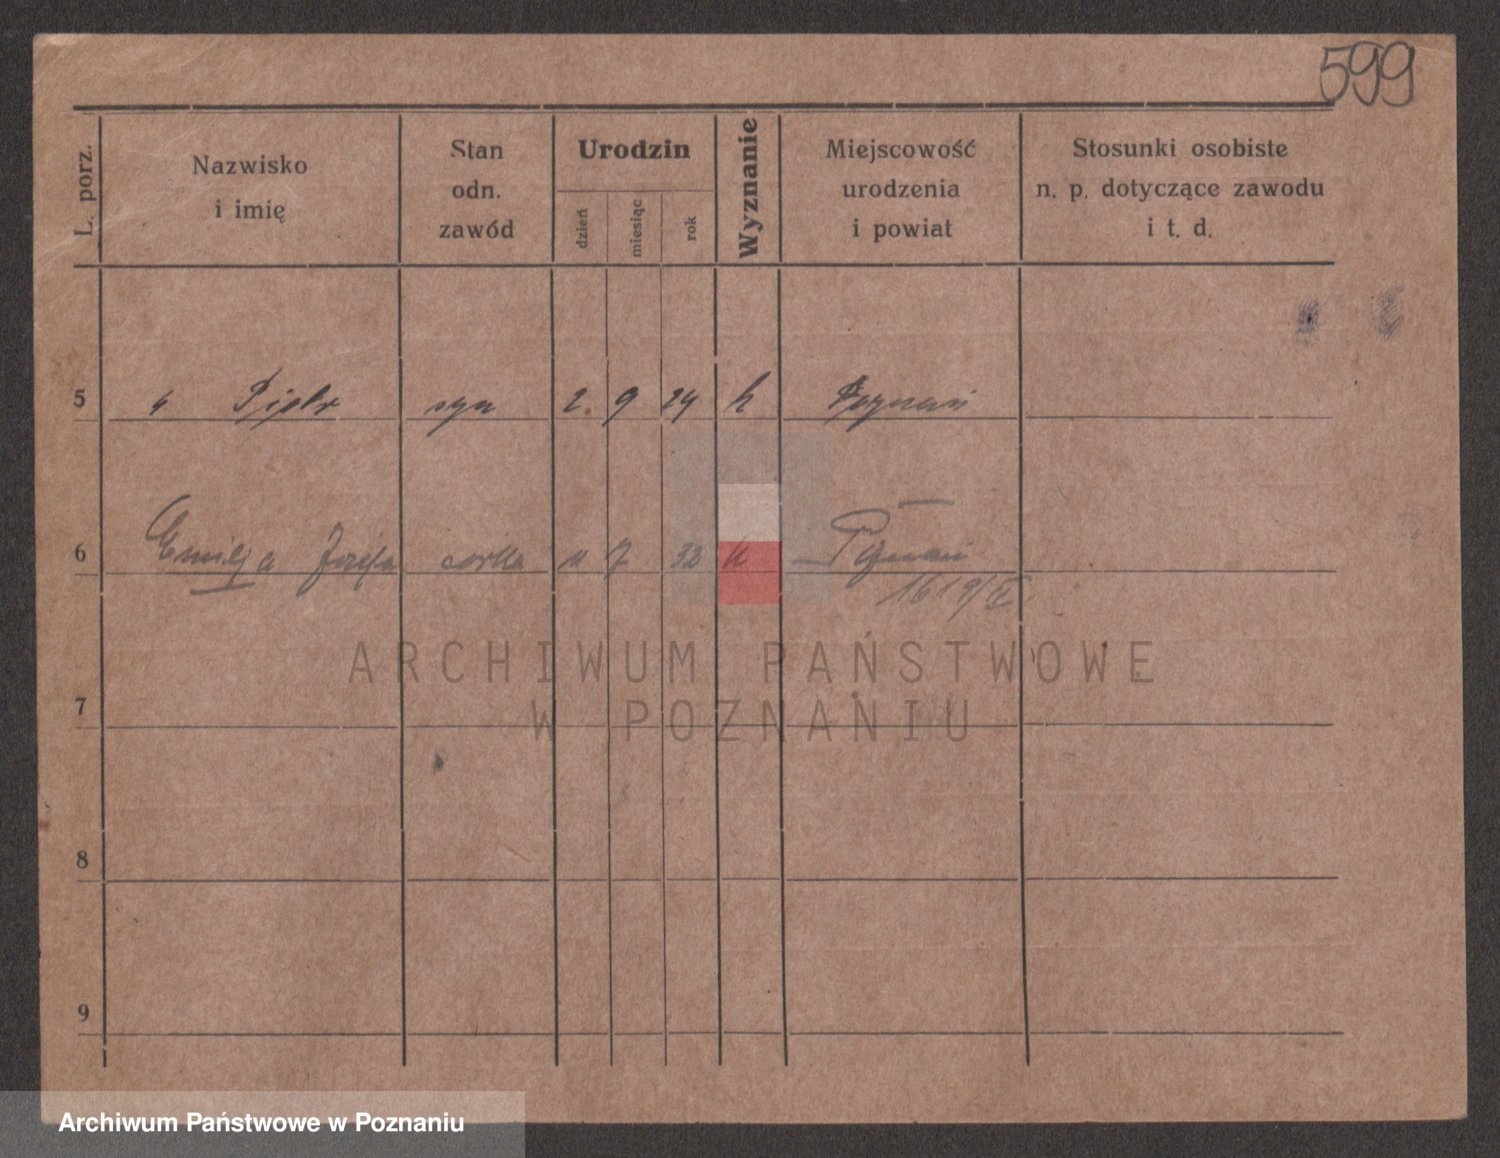 599
L. porz.
Nazwisko
i imię
Stan
odn.
zawód
Urodzin
dzień
miesiąc
rok
Wyznanie
Miejscowość
urodzenia
i powiat
Stosunki osobiste
n. p. dotyczące zawodu
i t. d.
5 Piotr syn 2. 9 24 k Poznań
6 Emilja Józefa corka 11 7 32 k Poznań
7
8
9
ARCHIWUM PAŃSTWOWE
W POZNANIU
Archiwum Państwowe w Poznaniu